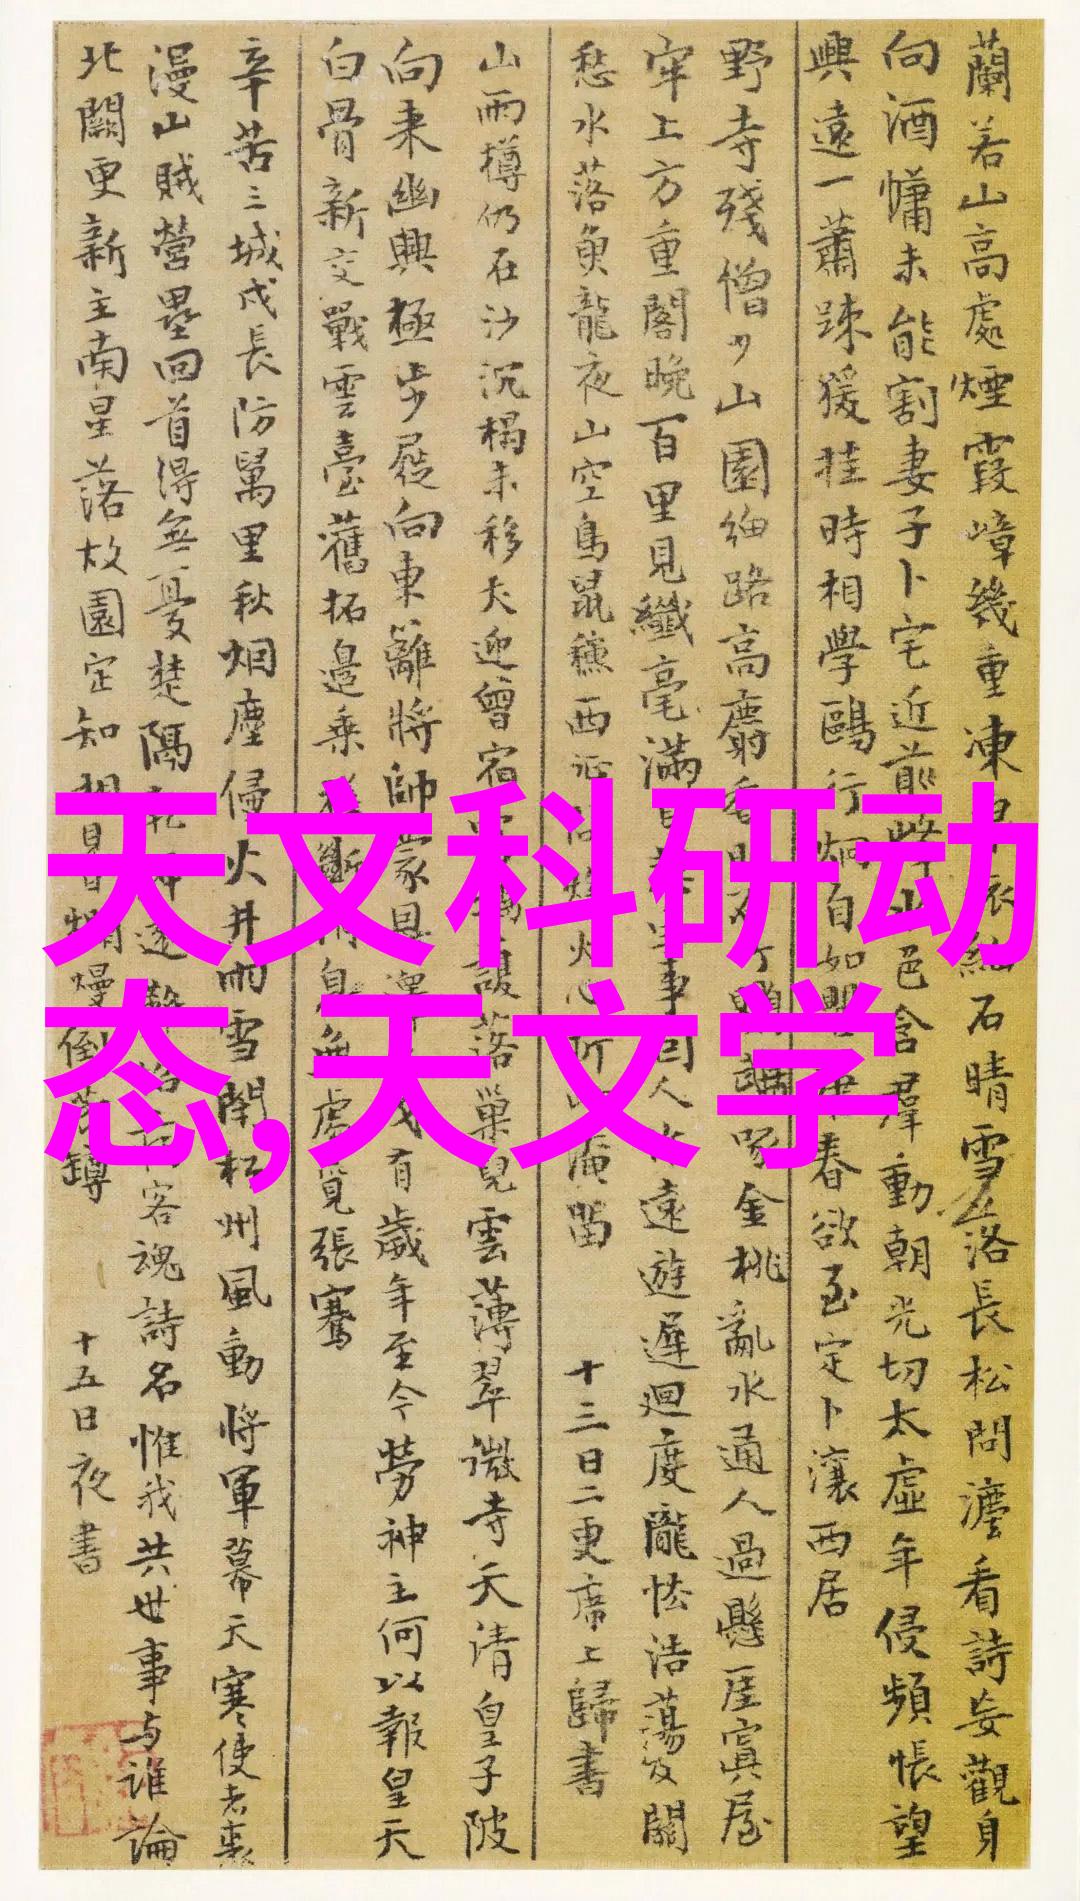 蘭若山高處煙霞嶂幾重凍石晴雪落長松問灋看詩妄觀身
向酒慵未能割妻子卜宅近前峰山色含羣動朝光切太虛年侵頻悵望
興遠一蕭踈猨挂時相學鷗行炯自如春欲至定卜瀼西居
野寺殘僧少山園細路高麝香金桃亂水通人過懸崖寘屋
牢上方重閣晚百里見纖毫滿事回人遠遊遲迴度隴怯浩蕩及關
愁水落魚龍夜山空鳥鼠穐西心折淹留 十三日二更席上歸書
山雨樽仍在沙沉榻未移犬迎曾宿護落巢兒雲薄翠微寺天清皇子陂
向來幽興極步屧向東籬將帥蒙恩有歲年至今勞神主何以報皇天
白骨新交戰雲臺舊拓邊乘斷消息無處覓張騫
辛苦三城戍長防萬里秋烟塵侵火井雨雪閉松州風動將軍幕天寒使者裘
漫山賊營壘回首得無憂楚隔客魂詩名惟我共世事与誰論
北闕更新主南星落故園定知相見爛熳倒芳罇 十五日夜書
天文科研动
态,天文学